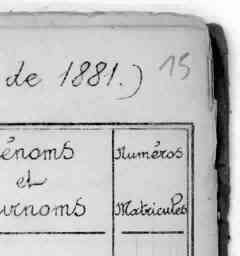 de 1881.) 15
énoms
et
urnoms
Numéros
Matricules